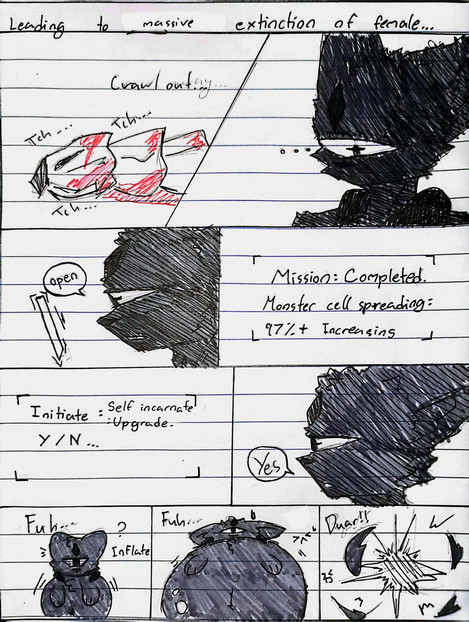 Leading to massive extinction of female...
Crawl out...
Tch...
Tch...
Tch...
...
open
Mission: Completed.
Monster cell spreading:
97%+ Increasing
Initiate : Self incarnate
: Upgrade.
Y/N...
Yes
Fuh...
?
Inflate
Fuh...
Duar!!